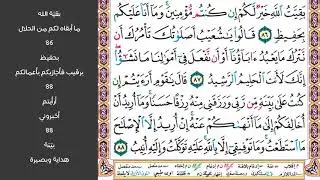 بَقِيَّتُ ٱللَّهِ خَيْرٌ لَّكُمْ إِن كُنتُم مُّؤْمِنِينَ وَمَآ أَنَا۠ عَلَيْكُم
بِحَفِيظٍ ٨٦ قَالُوا۟ يَٰشُعَيْبُ أَصَلَوٰتُكَ تَأْمُرُكَ أَن
نَّتْرُكَ مَا يَعْبُدُ ءَابَآؤُنَآ أَوْ أَن نَّفْعَلَ فِىٓ أَمْوَٰلِنَا مَا نَشَٰٓؤُا۟
إِنَّكَ لَأَنتَ ٱلْحَلِيمُ ٱلرَّشِيدُ ٨٧ قَالَ يَٰقَوْمِ أَرَءَيْتُمْ إِن
كُنتُ عَلَىٰ بَيِّنَةٍ مِّن رَّبِّى وَرَزَقَنِى مِنْهُ رِزْقًا حَسَنًا وَمَآ أُرِيدُ أَنْ
أُخَالِفَكُمْ إِلَىٰ مَآ أَنْهَىٰكُمْ عَنْهُ إِنْ أُرِيدُ إِلَّا ٱلْإِصْلَٰحَ
مَا ٱسْتَطَعْتُ وَمَا تَوْفِيقِىٓ إِلَّا بِٱللَّهِ عَلَيْهِ تَوَكَّلْتُ وَإِلَيْهِ أُنِيبُ ٨٨
بقية الله
ما أبقاه لكم من الحلال
86
بحفيظ
برقيب فأجازيكم بأعمالكم
88
أرأيتم
أخبروني
88
بيّنة
هداية وبصيرة